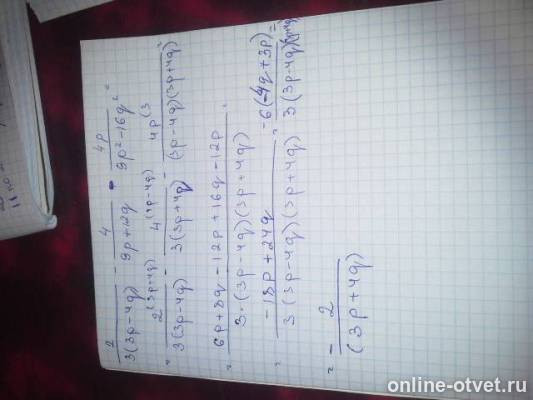 2/(3(3p-4q)) - 4/(9p+12q) - 4p/(9p²-16q²) =
= 2(3p+4q)/(3(3p-4q)) - 4(3p-4q)/(3(3p+4q)) - 4p(3/((3p-4q)(3p+4q)) =
= (6p+8q-12p+16q-12p)/(3·(3p-4q)(3p+4q)) =
= (-18p+24q)/(3(3p-4q)(3p+4q)) = -6(-4q+3p)/(3(3p-4q)(3p+4q)) =
= - 2/(3p+4q)
online-otvet.ru